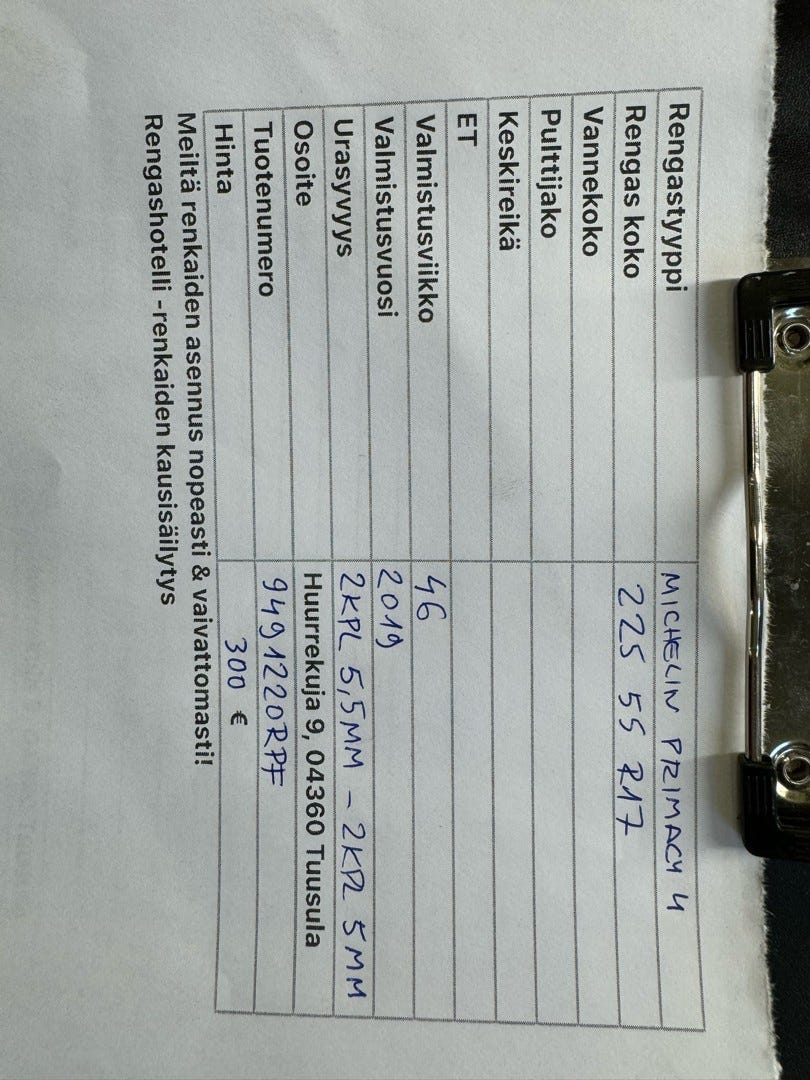 Rengastyyppi MICHELIN PRIMACY 4
Rengas koko 225 55 R17
Vannekoko
Pulttijako
Keskireikä
ET
Valmistusviikko 46
Valmistusvuosi 2019
Urasyvyys 2KPL 5,5MM - 2KPL 5MM
Osoite Huurrekuja 9, 04360 Tuusula
Tuotenumero 9491220RPF
Hinta 300 €
Meiltä renkaiden asennus nopeasti & vaivattomasti!
Rengashotelli -renkaiden kausisäilytys